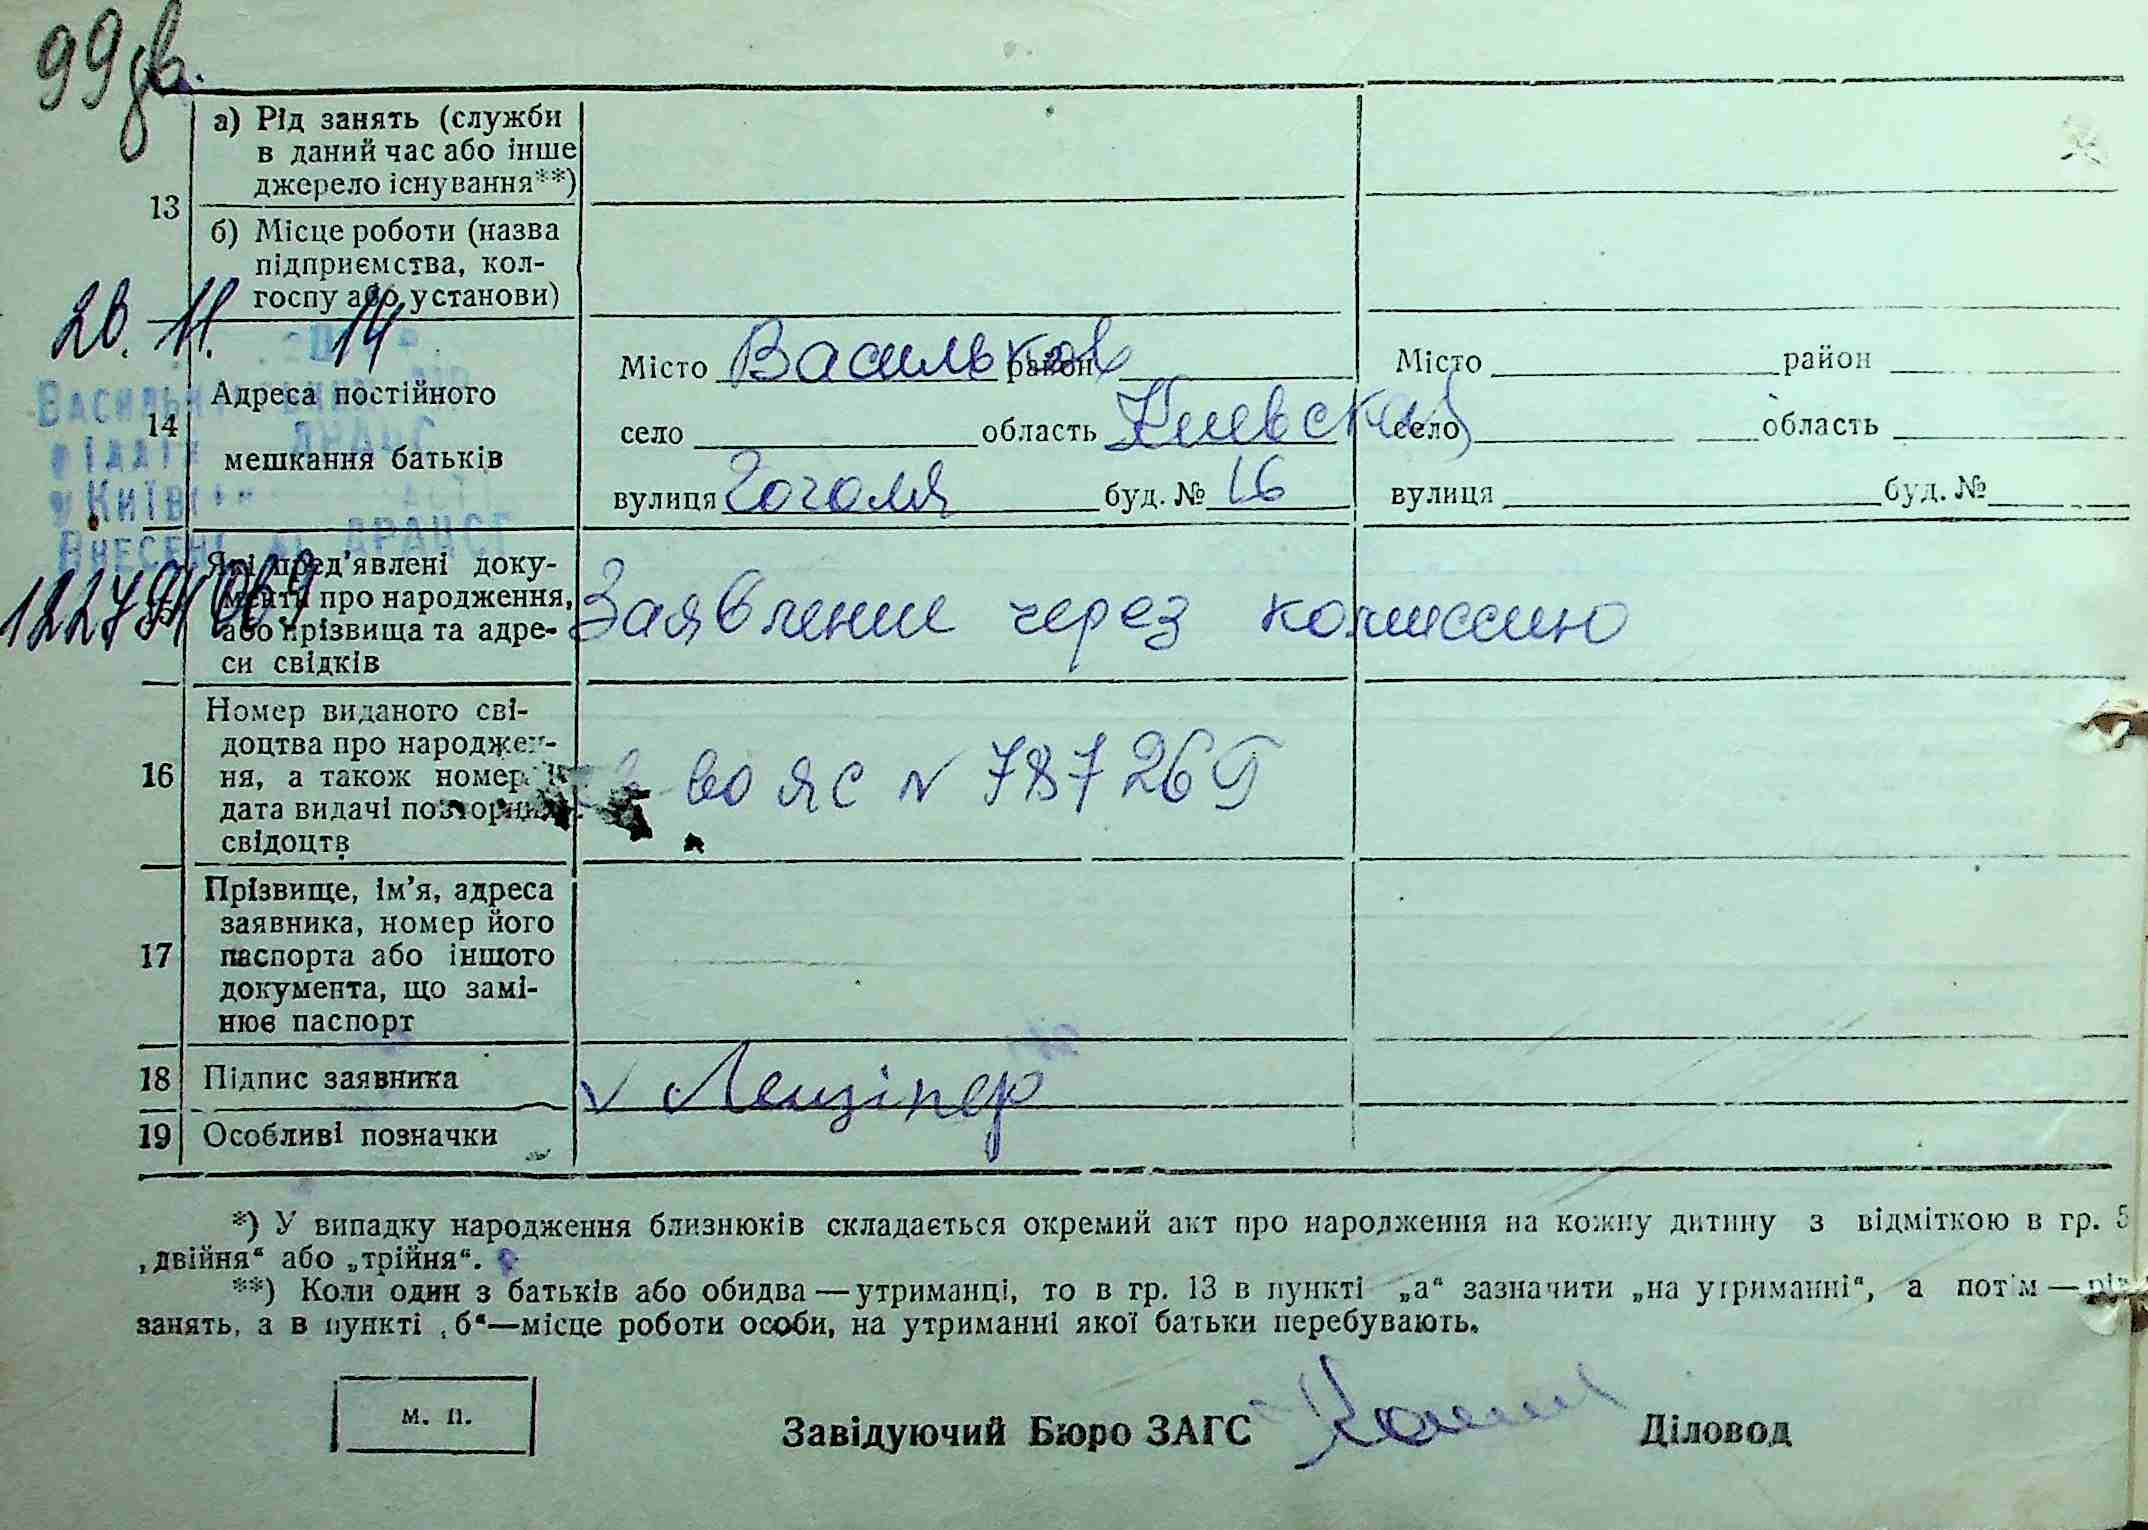 99
а) Рід занять (служби
в даний час або інше
джерело існування**)
13
б) Місце роботи (назва
підприємства, кол-
госпу або установи)
20. 11. 14
Місто Васильков район Місто район
14 Адреса постійного
мешкання батьків
село область Киевская село область
вулиця Гоголя буд. № 16 вулиця буд. №
у Київ
Внесені ДРАЦСГ
Які пред'явлені доку-
менти про народження,
або прізвища та адре-
си свідків
Заявление через комиссию
16 Номер виданого сві-
доцтва про народжен-
ня, а також номер
дата видачі повторних
свідоцтв
во яс № 787266
17 Прізвище, ім'я, адреса
заявника, номер його
паспорта або іншого
документа, що замі-
нює паспорт
18 Підпис заявника
19 Особливі позначки
*) У випадку народження близнюків складається окремий акт про народження на кожну дитину з відміткою в гр. 5
„двійня“ або „трійня“.
**) Коли один з батьків або обидва — утриманці, то в гр. 13 в пункті „а“ зазначити „на утриманні“, а потім — рід
занять, а в пункті „б“—місце роботи особи, на утриманні якої батьки перебувають.
м. п.
Завідуючий Бюро ЗАГС Діловод